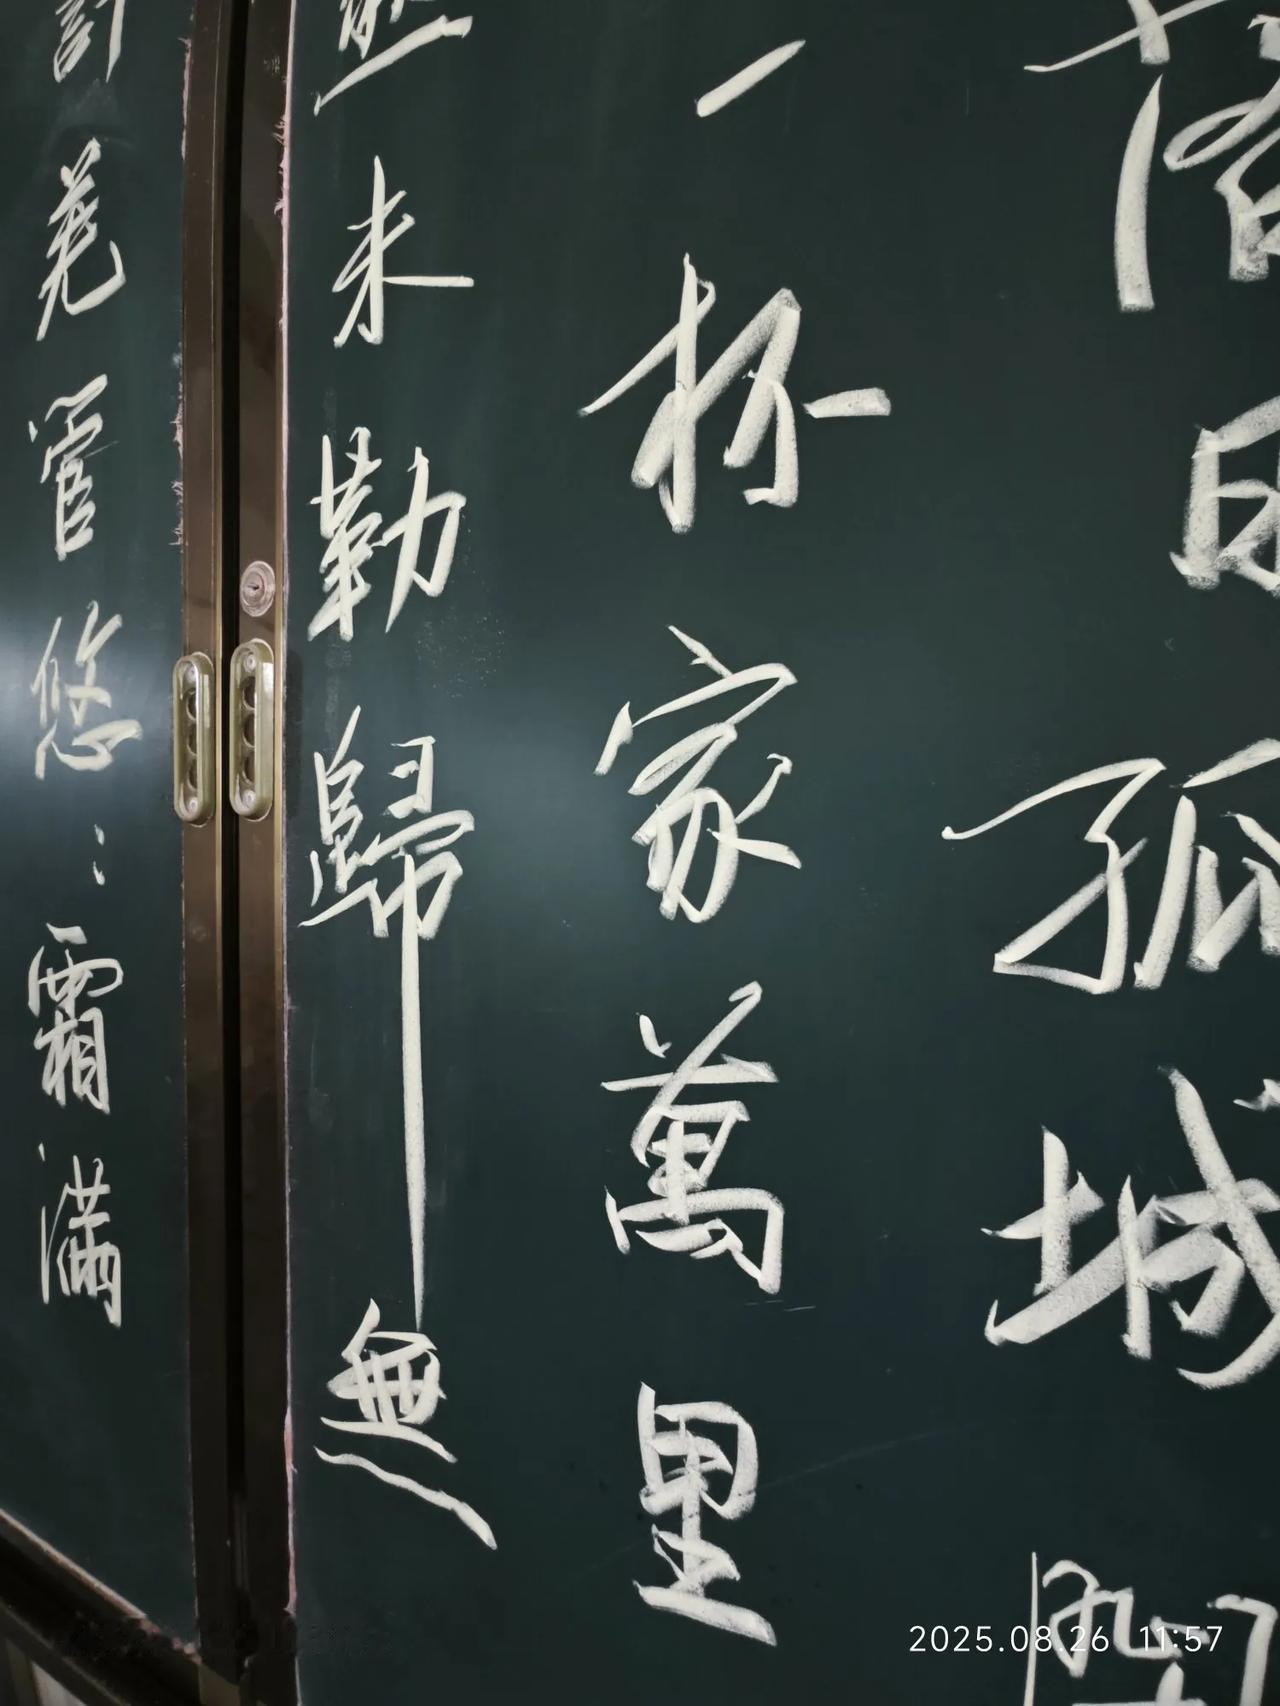 落日孤城閉
一杯家萬里
未勒歸無
計羌管悠：霜滿
2025.08.26 11:57